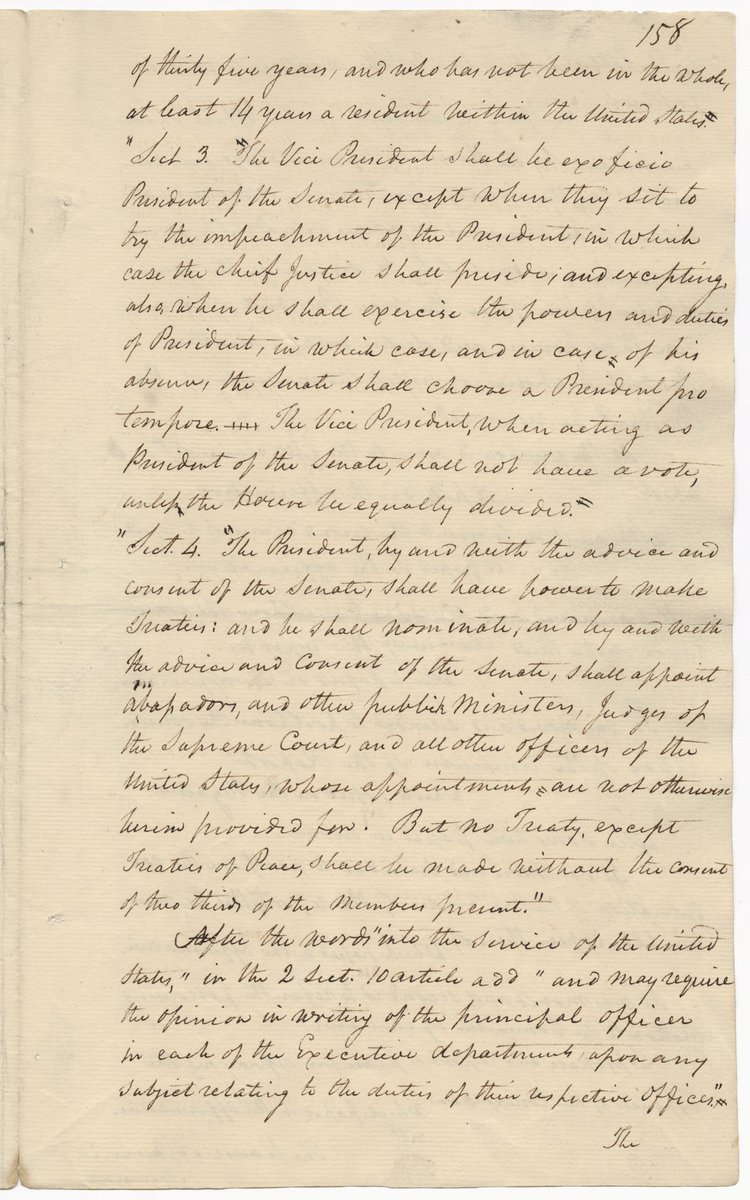 158
of thirty five years, and who has not been in the whole,
at least 14 years a resident within the United States."
"Sect 3. "The Vice President shall be exoficio
President of the Senate, except when they sit to
try the impeachment of the President, in which
case the Chief Justice shall preside, and excepting,
also, when he shall exercise the powers and duties
of President, in which case, and in case of his
absence, the Senate shall choose a President pro
tempore. The Vice President, when acting as
President of the Senate, shall not have a vote,
unless, the House be equally divided."
"Sect. 4. "The President, by and with the advice and
consent of the Senate, shall have power to make
Treaties: and he shall nominate, and by and with
the advice and consent of the Senate, shall appoint
ambassadors, and other publick Ministers, Judges of
the Supreme Court, and all other officers of the
United States, whose appointments are not otherwise
herein provided for. But no Treaty, except
Treaties of Peace, shall be made without the consent
of two thirds of the Members present."
After the words "into the service of the United
States," in the 2 Sect. 10 article add "and may require
the opinion in writing of the principal officer
in each of the Executive departments, upon any
subject relating to the duties of their respective offices."
The